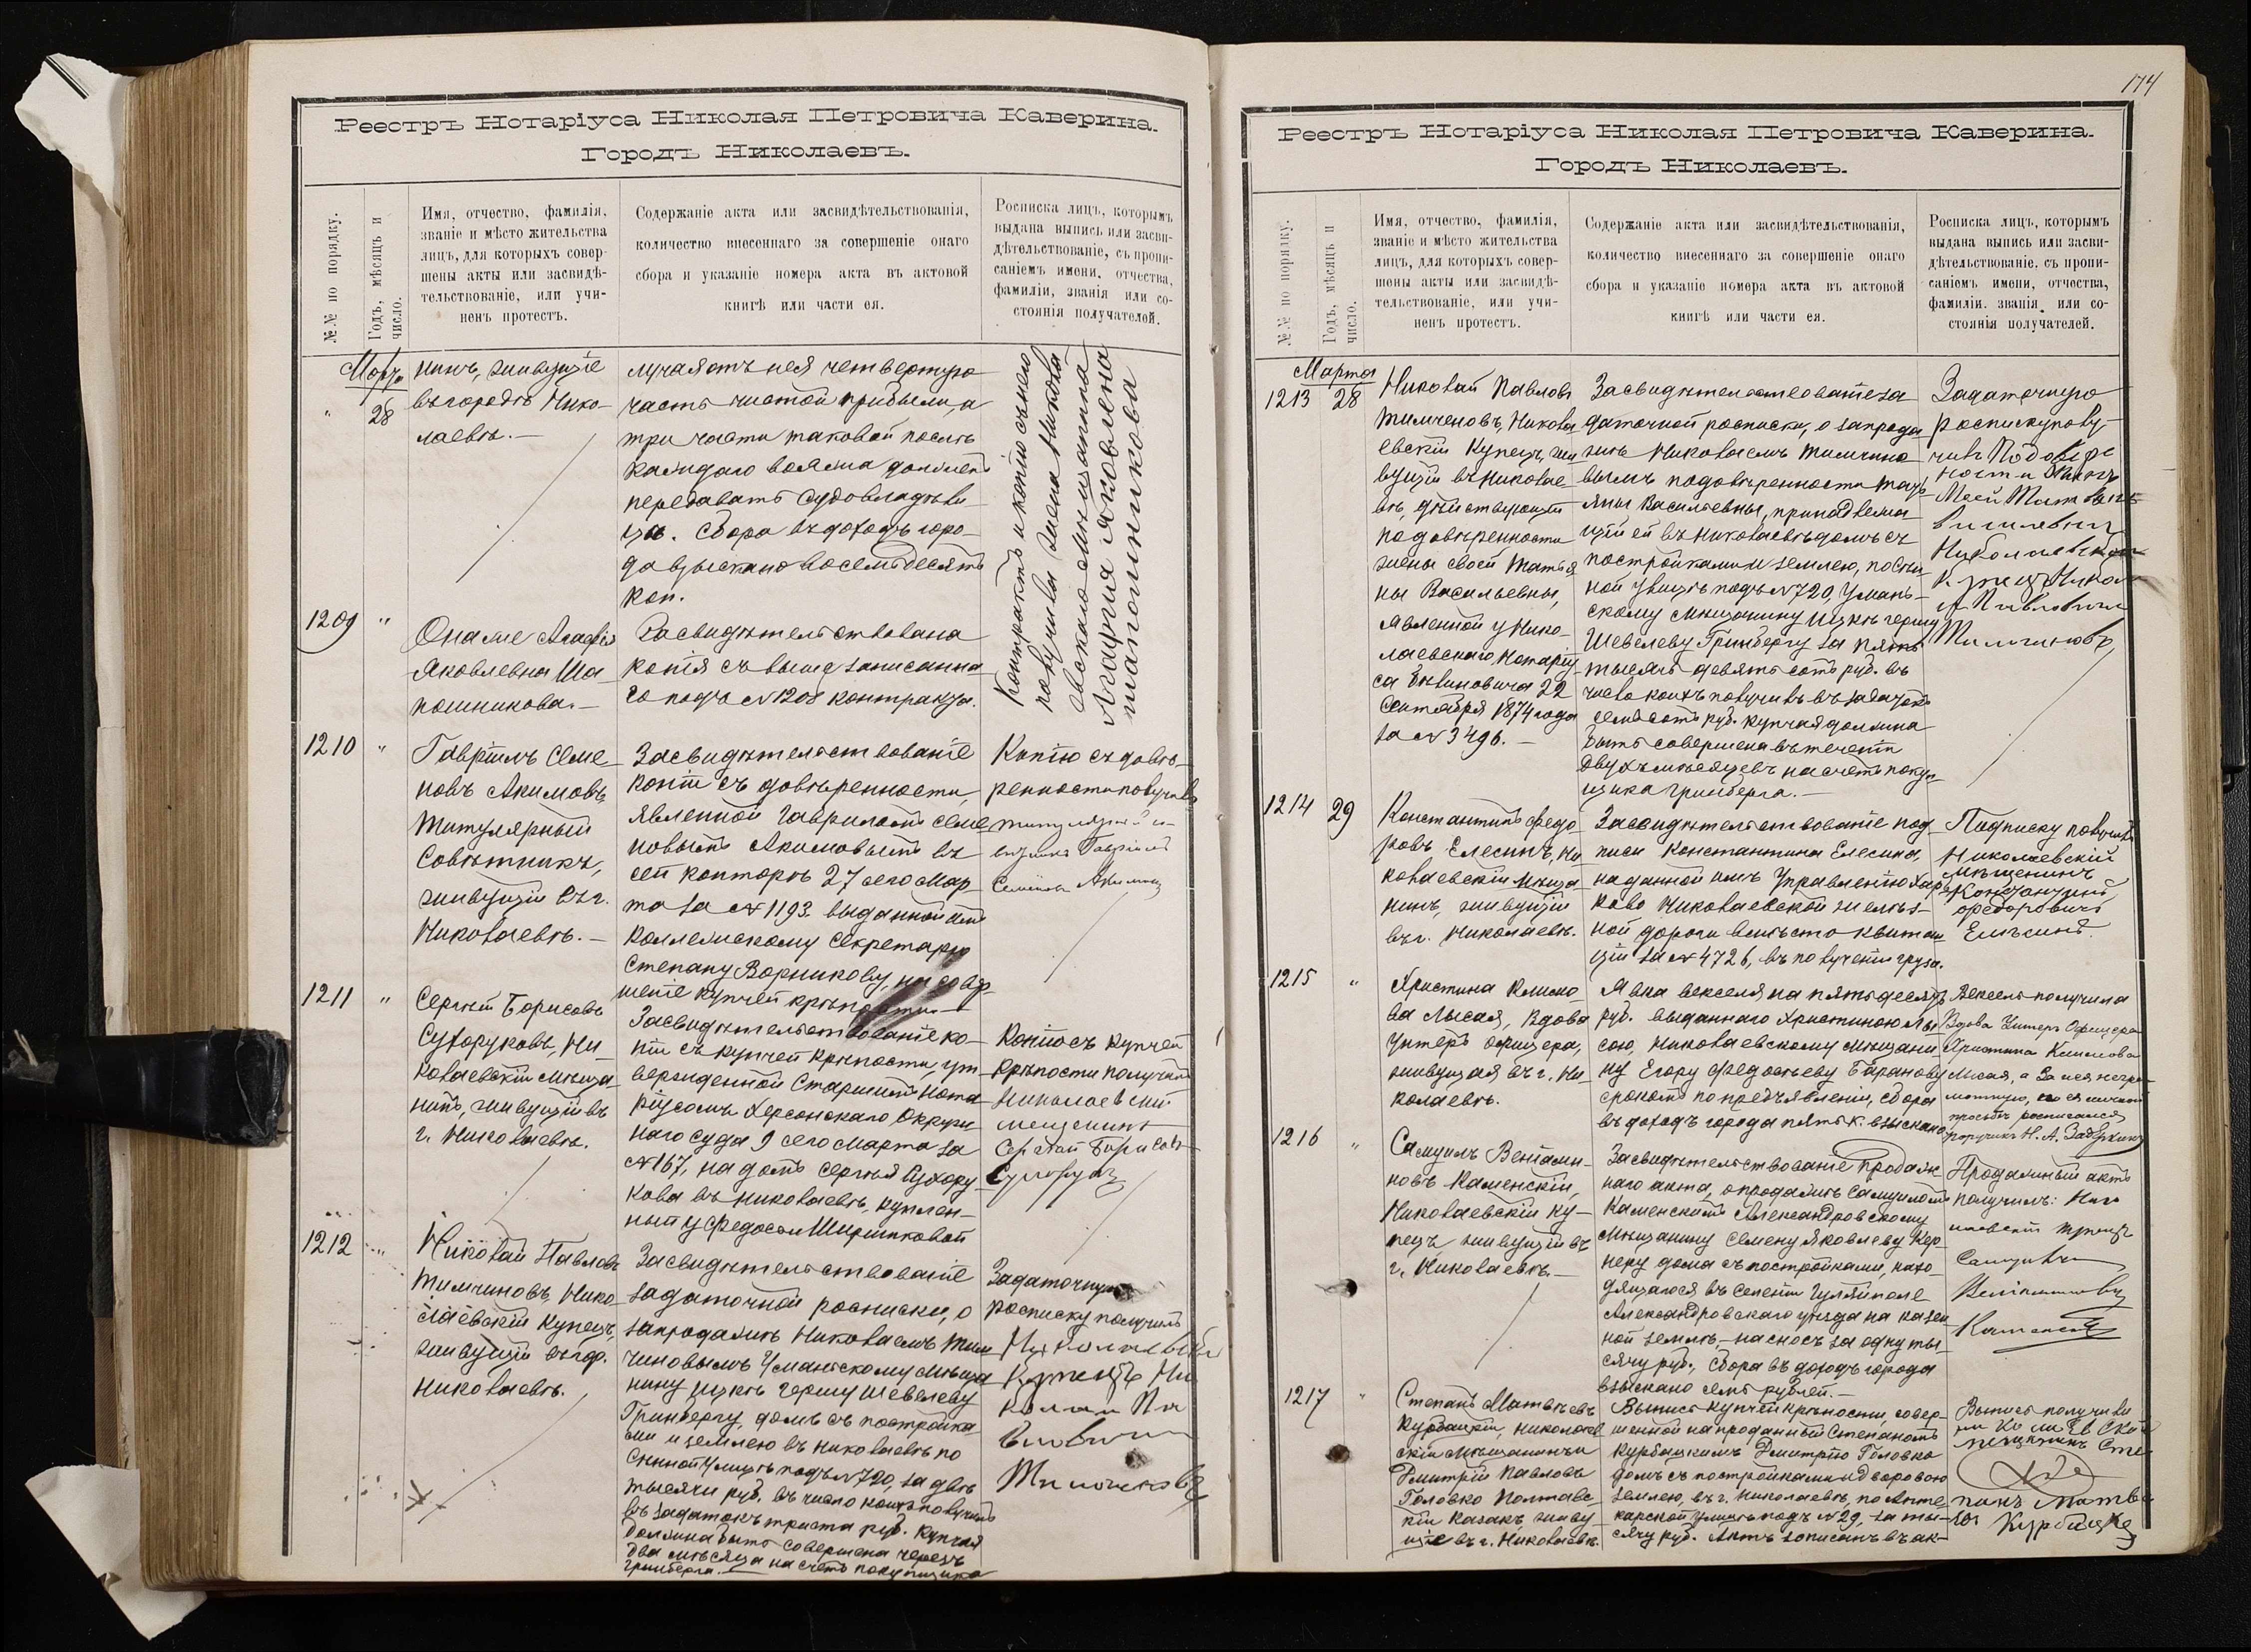 Реестръ Нотаріуса Николая Петровича Каверина.
Городъ Николаевъ.
№№ по порядку.
Годъ, мѣсяцъ и
число.
Имя, отчество, фамилія,
званіе и мѣсто жительства
лицъ, для которыхъ совер-
шены акты или засвидѣ-
тельствованіе, или учи-
ненъ протестъ.
Содержаніе акта или засвидѣтельствованія,
количество внесеннаго за совершеніе онаго
сбора и указаніе номера акта въ актовой
книгѣ или части ея.
Росписка лицъ, которымъ
выдана выпись или засви-
дѣтельствованіе, съ пропи-
саніемъ имени, отчества,
фамиліи, званія или со-
стоянія получателей.
Марта
" 28
нинъ, живущіе
въ городѣ Нико-
лаевѣ.—
лучая отъ нея четвертую
часть чистой прибыли, а
три части таковой послѣ
каждаго вояжа долженъ
передавать судовладѣли-
цѣ. Сбора въ доходъ горо-
да взыскано восемьдесятъ
коп.
Контрактъ и копію съ него
получила жена Никола-
евскаго мѣщанина
Агафія Яковлевна
Шапошникова
1209 "
Она же Агафія
Яковлевна Ша-
пошникова.—
Засвидѣтельствована
копія съ выше записанна-
го подъ № 1208 контракта.
1210 "
Гавріилъ Семе-
новъ Акимовъ,
Титулярный
Совѣтникъ,
живущій въ г.
Николаевѣ.—
Засвидѣтельствованіе
копіи съ довѣренности,
явленной Гавріиломъ Семе-
новымъ Акимовымъ въ
сей конторѣ 27 сего Мар-
та за № 1193. выданной имъ
Коллежскому Секретарю
Степану Ворникову, на совер-
шеніе купчей крѣпости.—
Копію съ довѣ-
ренности получилъ
титулярный со-
вѣтникъ Гавріилъ
Семеновъ Акимовъ
1211 "
Сергѣй Борисовъ
Сухоруковъ, Ни-
колаевскій мѣща-
нинъ, живущій въ
г. Николаевѣ.
Засвидѣтельствованіе ко-
піи съ купчей крѣпости, ут-
вержденной Старшимъ Нота-
ріусомъ Херсонскаго Окруж-
наго Суда 9 сего Марта за
№ 167, на домъ Сергѣя Сухору-
кова въ Николаевѣ, куплен-
ный у Федосьи Ширинковой
Копію съ купчей
крѣпости получилъ
Николаевскій
мещенинъ
Сергѣй Борисовъ
Сухоруковъ
1212 "
Николай Павловъ
Тимченовъ, Нико-
лаевскій Купецъ,
живущій въ гор.
Николаевѣ.
Засвидѣтельствованіе
задаточной росписки, о
запродажѣ Николаемъ Тим-
ченовымъ Уманскому мѣща-
нину Ицкѣ Гершу Шевелеву
Гринбергу, домъ съ постройка-
ми и землею въ Николаевѣ по
Сѣнной улицѣ подъ № 720, за двѣ
тысячи руб. въ число коихъ получилъ
въ задатокъ триста руб. Купчая
должна быть совершена черезъ
два мѣсяца на счетъ покупщика
Гринберга.—
Задаточную
росписку получилъ
Николаевскій
Купецъ Ни-
колай Па-
вловичъ
Тимченовъ
174
Реестръ Нотаріуса Николая Петровича Каверина.
Городъ Николаевъ.
№№ по порядку.
Годъ, мѣсяцъ и
число.
Имя, отчество, фамилія,
званіе и мѣсто жительства
лицъ, для которыхъ совер-
шены акты или засвидѣ-
тельствованіе, или учи-
ненъ протестъ.
Содержаніе акта или засвидѣтельствованія,
количество внесеннаго за совершеніе онаго
сбора и указаніе номера акта въ актовой
книгѣ или части ея.
Росписка лицъ, которымъ
выдана выпись или засви-
дѣтельствованіе, съ пропи-
саніемъ имени, отчества,
фамиліи, званія или со-
стоянія получателей.
Марта
1213 28
Николай Павловъ
Тимченовъ, Никола-
евскій Купецъ, жи-
вущій въ Николае-
вѣ, дѣйствующій
по довѣренности
жены своей Татья-
ны Васильевны,
явленной у Нико-
лаевскаго Нотаріу-
са
Сентября 1874 года
за № 3496.—
Засвидѣтельствованіе за-
даточной росписки, о запрода-
жѣ Николаемъ Тимчено-
вымъ по довѣренности Тать-
яны Васильевны, принадлежа-
щій ей въ Николаевѣ домъ съ
постройками и землею, по Сѣн-
ной улицѣ подъ № 720, Уман-
скому мѣщанину Ицкѣ Гершу
Шевелеву Гринбергу за пять
тысячъ девятьсотъ руб. въ
число коихъ получилъ въ задатокъ
семьсотъ руб. Купчая должна
быть совершена въ теченіи
двухъ мѣсяцевъ на счетъ покуп-
щика Гринберга.—
Задаточную
росписку полу-
чилъ По довѣре
ности жены
Моей Татьяны
Василевны
Николаевскій
Купецъ Никола
й Павловичъ
Тимченовъ
1214 29
Константинъ Федо-
ровъ Елесинъ, Ни-
колаевскій мѣща-
нинъ, живущій
въ г. Николаевѣ.
Засвидѣтельствованіе под-
писи Константина Елесина,
на данной имъ Управленію Харь-
ково Николаевской желѣз-
ной дороги вмѣсто квитан-
ціи за № 4726, въ полученіи груза.
Подписку получилъ
Николаевскій
мѣщенинъ
Константинъ
Федоровичъ
Елѣсинъ.
1215 "
Христина Климо-
ва Лысая, вдова
унтеръ офицера,
живущая въ г. Ни-
колаевѣ.
Явка векселя на пятьдесятъ
руб. выданнаго Христиною Лы-
сою, Николаевскому мѣщани-
ну Егору Федосѣеву Баранову
срокомъ по предъявленіи, сбора
въ доходъ города пять к. взыскано.
Вексель получила
Вдова Унтеръ Офицера
Христина Климова
Лысая, а за нея негра-
мотную, по ея личной
просьбѣ росписался
поручикъ Н. А. Заверкинъ
1216 "
Самуилъ Веніами-
новъ Каменскій,
Николаевскій ку-
пецъ живущій въ
г. Николаевѣ.—
Засвидѣтельствованіе продаж-
наго акта, о продажѣ Самуиломъ
Каменскимъ Александровскому
мѣщанину Семену Яковлеву Кер-
неру дома съ постройками, нахо-
дящагося въ селеніи Гуляйполе
Александровскаго уѣзда на казен-
ной землѣ,—на сносъ за одну ты-
сячу руб., сбора въ доходъ города
взыскано семь рублей.—
Продажный актъ
получилъ: Нико
лаевскій купецъ
Самуилъ
Веніаминовъ
Каменскій
1217 "
Степанъ Матвѣевъ
Курбацкій, Николаев-
скій мѣщанинъ и
Дмитрій Павловъ
Головко Полтавс-
кій казакъ живу-
щіе въ г. Николаевѣ.
Выпись купчей крѣпости, совер-
шенной на проданный Степаномъ
Курбацкимъ Дмитрію Головко
домъ съ постройками и дворовою
землею, въ г. Николаевѣ, по Апте-
карской улицѣ подъ № 29, за ты-
сячу руб. Актъ записанъ въ ак-
Выпись получилъ
Николаевскій
мещанинъ Сте
панъ Матве
евъ Курбацкій